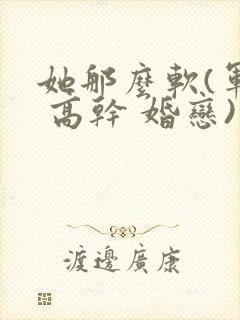 她那麼軟(軍
高幹 婚戀)
渡邊廣康